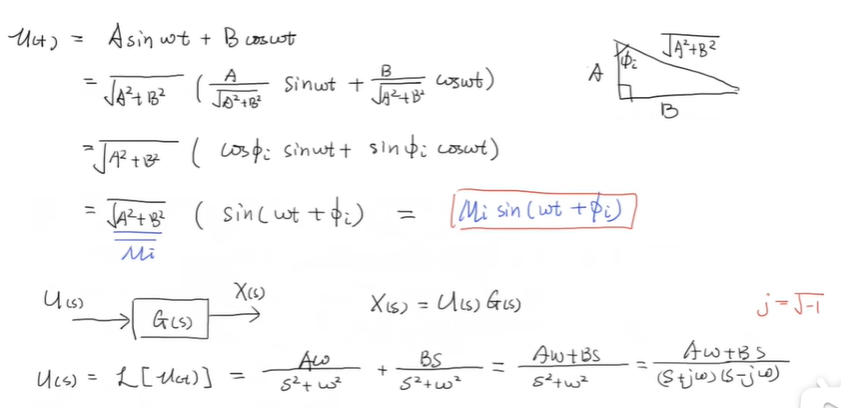 u(t) = A sin ωt + B cos ωt
= √(A²+B²) ( A/√(A²+B²) sin ωt + B/√(A²+B²) cos ωt)
= √(A²+B²) ( cos ϕi sin ωt + sin ϕi cos ωt)
= √(A²+B²) ( sin(ωt + ϕi) = Mi sin(ωt + ϕi)
Mi
A ϕi √(A²+B²)
B
U(s) G(s) X(s) X(s) = U(s) G(s) j = √-1
U(s) = L[u(t)] = Aω/(s²+ω²) + Bs/(s²+ω²) = (Aω+Bs)/(s²+ω²) = (Aω+Bs)/((s+jω)(s-jω))